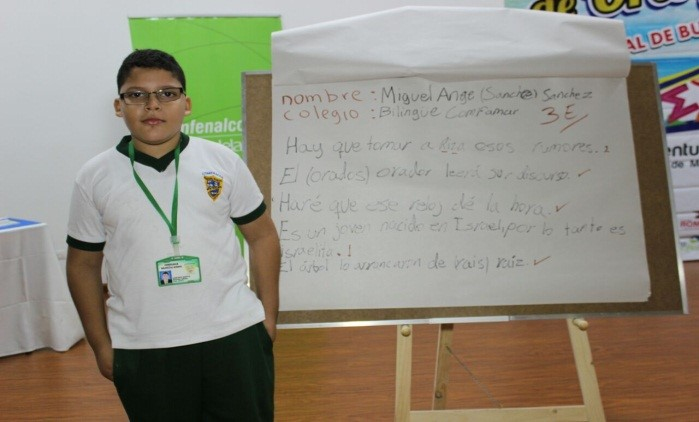 nfenalco
AL DE BU
nombre : Miguel Ange (Sanche) Sanchez
colegio : Bilingüe Comfamar 3E
Hay que tomar a risa esos rumores. 1
El (orados) orador leerá su discurso. ✓
Haré que ese reloj dé la hora. ✓
Es un joven nacido en Israel, por lo tanto es
israelita. 1
El árbol lo arrancaron de (rais) raiz. ✓
entu
de M